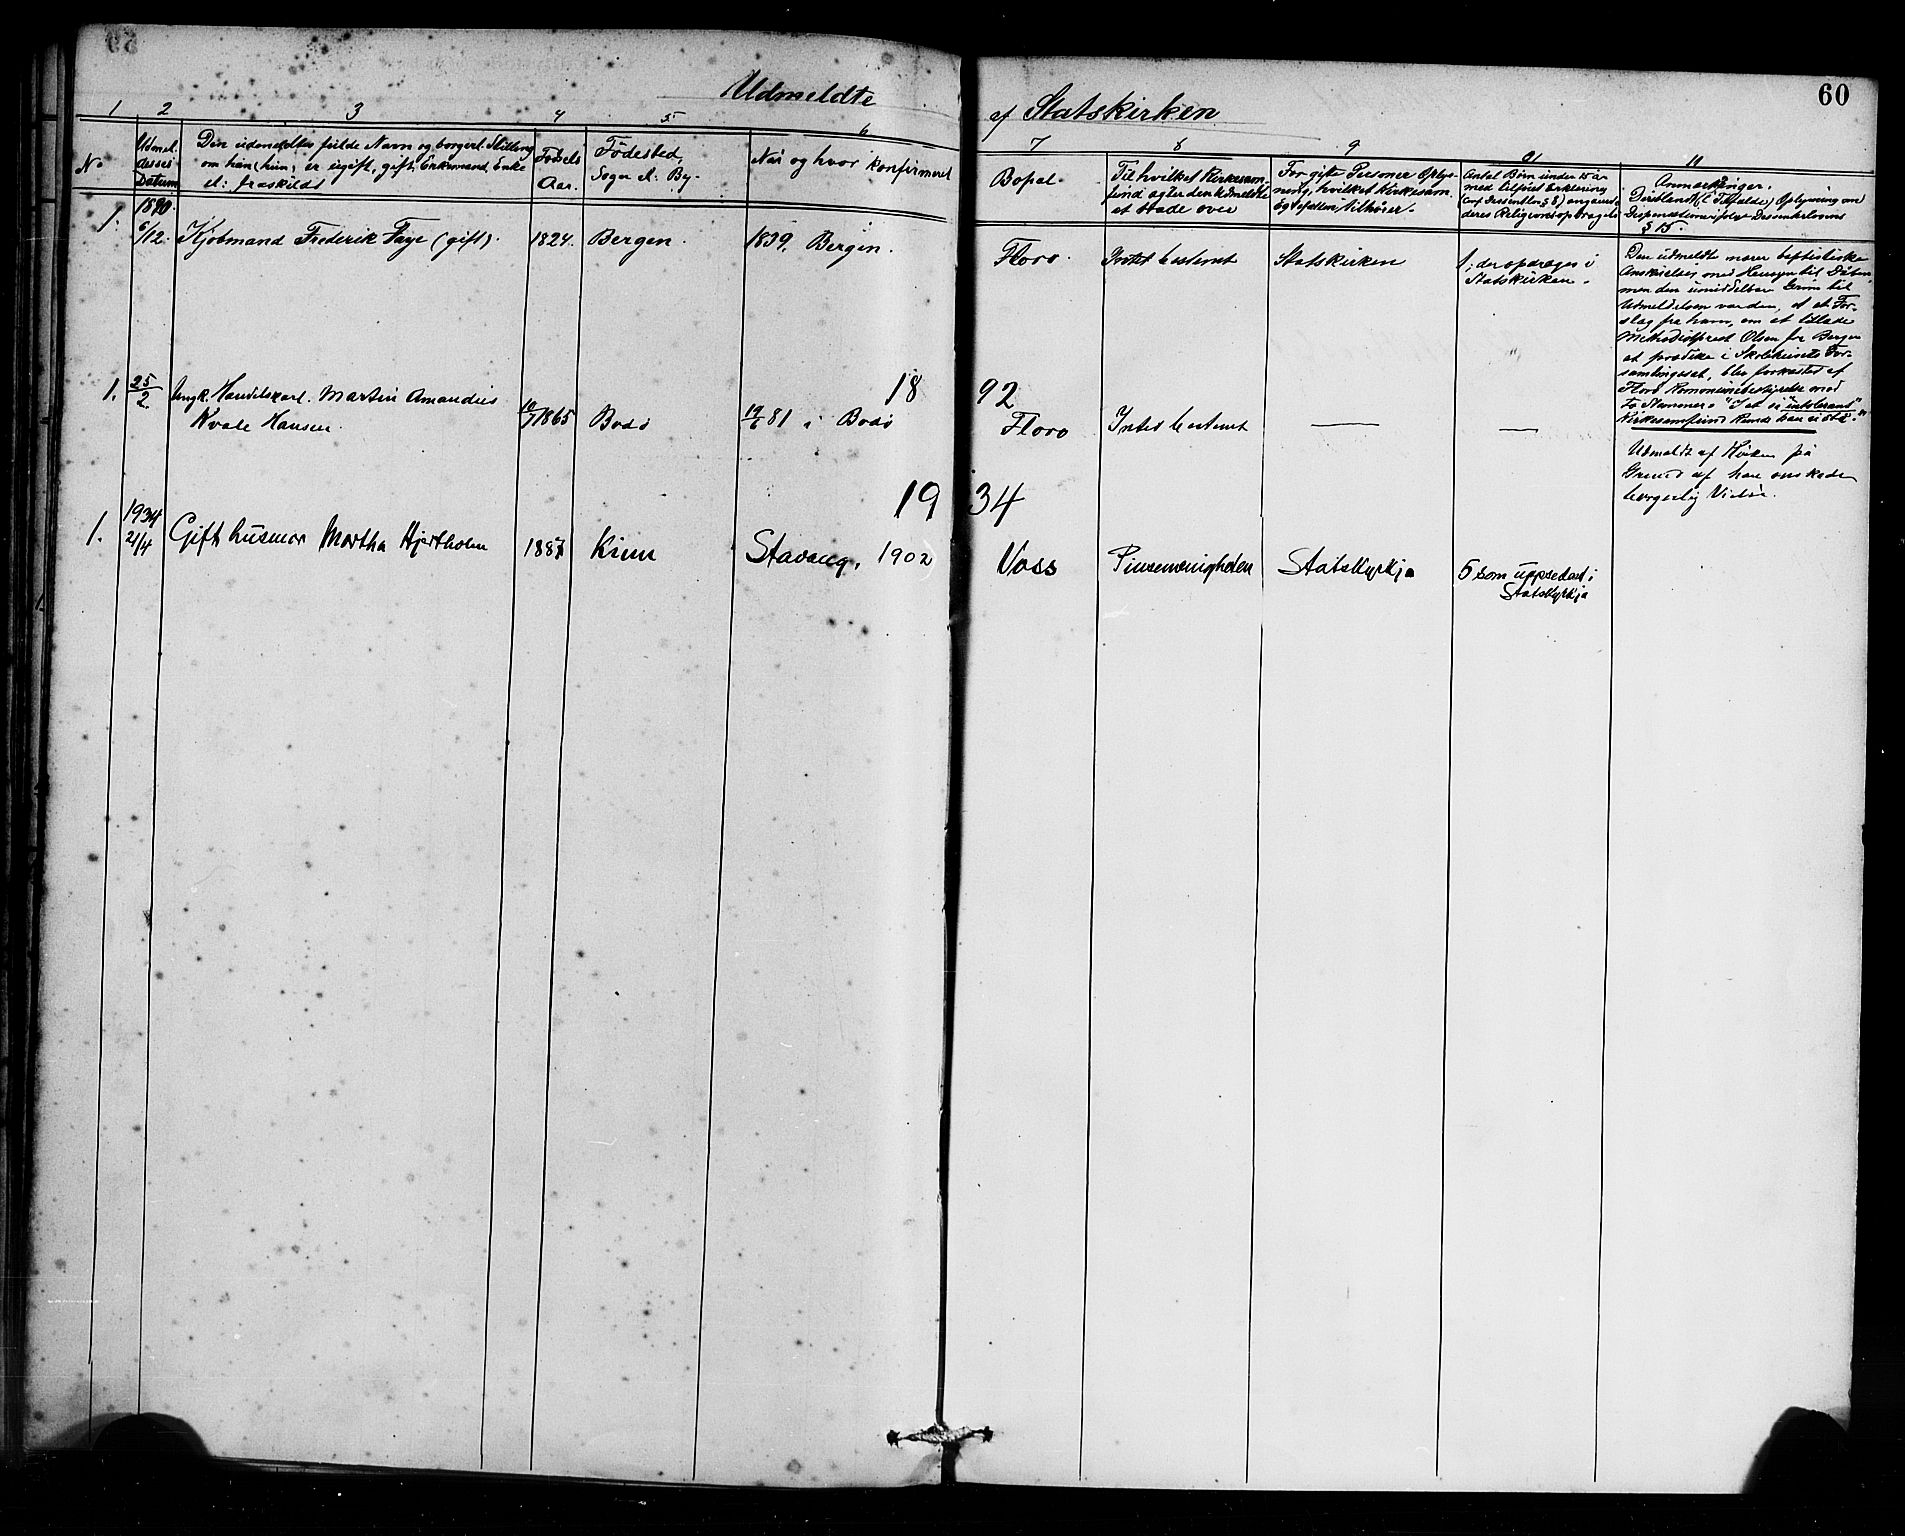 60
Udmeldte af Statskirken
1 2 3 4 5 6 7 8 9 10 11
No
Udmel-
delses
Datum
Den udmeldtes fulde Navn og borgerl. Stilling
om han (hun) er ugift, gift, Enkemand, Enke
el. fraskildt
Fødsels
Aar.
Fødested,
Sogn el. By.
Når og hvor konfirmeret
Bopæl.
Til hvilket Kirkesam-
fund agter den udmeldte
at træde over
For gifte Personer Oplys-
ning, hvilket Kirkesam.
Ægtefællen tilhører.
Antal Børn under 15 år
med tilføiet Erklæring
(cnf. Dissentlov § 8) angaaende
deres Religionsopdragelse
Anmærkninger.
(i Tilfælde) Oplysning om
Dispensation ifølge Dissenterlovens
§ 15.
1.
1890.
6/12.
Kjøbmand Frederik Faye (gift).
1824.
Bergen.
1839, Bergen.
Florø.
Intet bestemt
Statskirken
1, der opdrages i
Statskirken.
Den udmeldte nærer baptistiske
Anskuelser med Hensyn til Dåben,
men den umiddelbare Grund til
Udmeldelsen var den, at et For-
slag fra ham, om at tillade
Methodistprest Olsen fra Bergen
at prædike i Skolehusets For-
samlingssal, blev forkastet af
Florø Kommunebestyrelse med
"I et så "intolerant"
Kirkesamfund kunde han ei stå."
18 92
1.
25/2.
Ungk. Handelskarl. Martin Amandus
Kvale Hansen.
10/7 1865
Bodø
19/6 81 i Bodø
Florø
Intet bestemt
—
—
"
Udmeldt af Kirken på
Grund af han ønskede
borgerlig Vielse.
19 34
1.
1934
21/4
Gift husmor Martha Hjertholm
1887
Kinn
Stavang, 1902
Voss
Pinsemenigheden
Statskyrkja
5 som uppsedast i
Statskyrkja